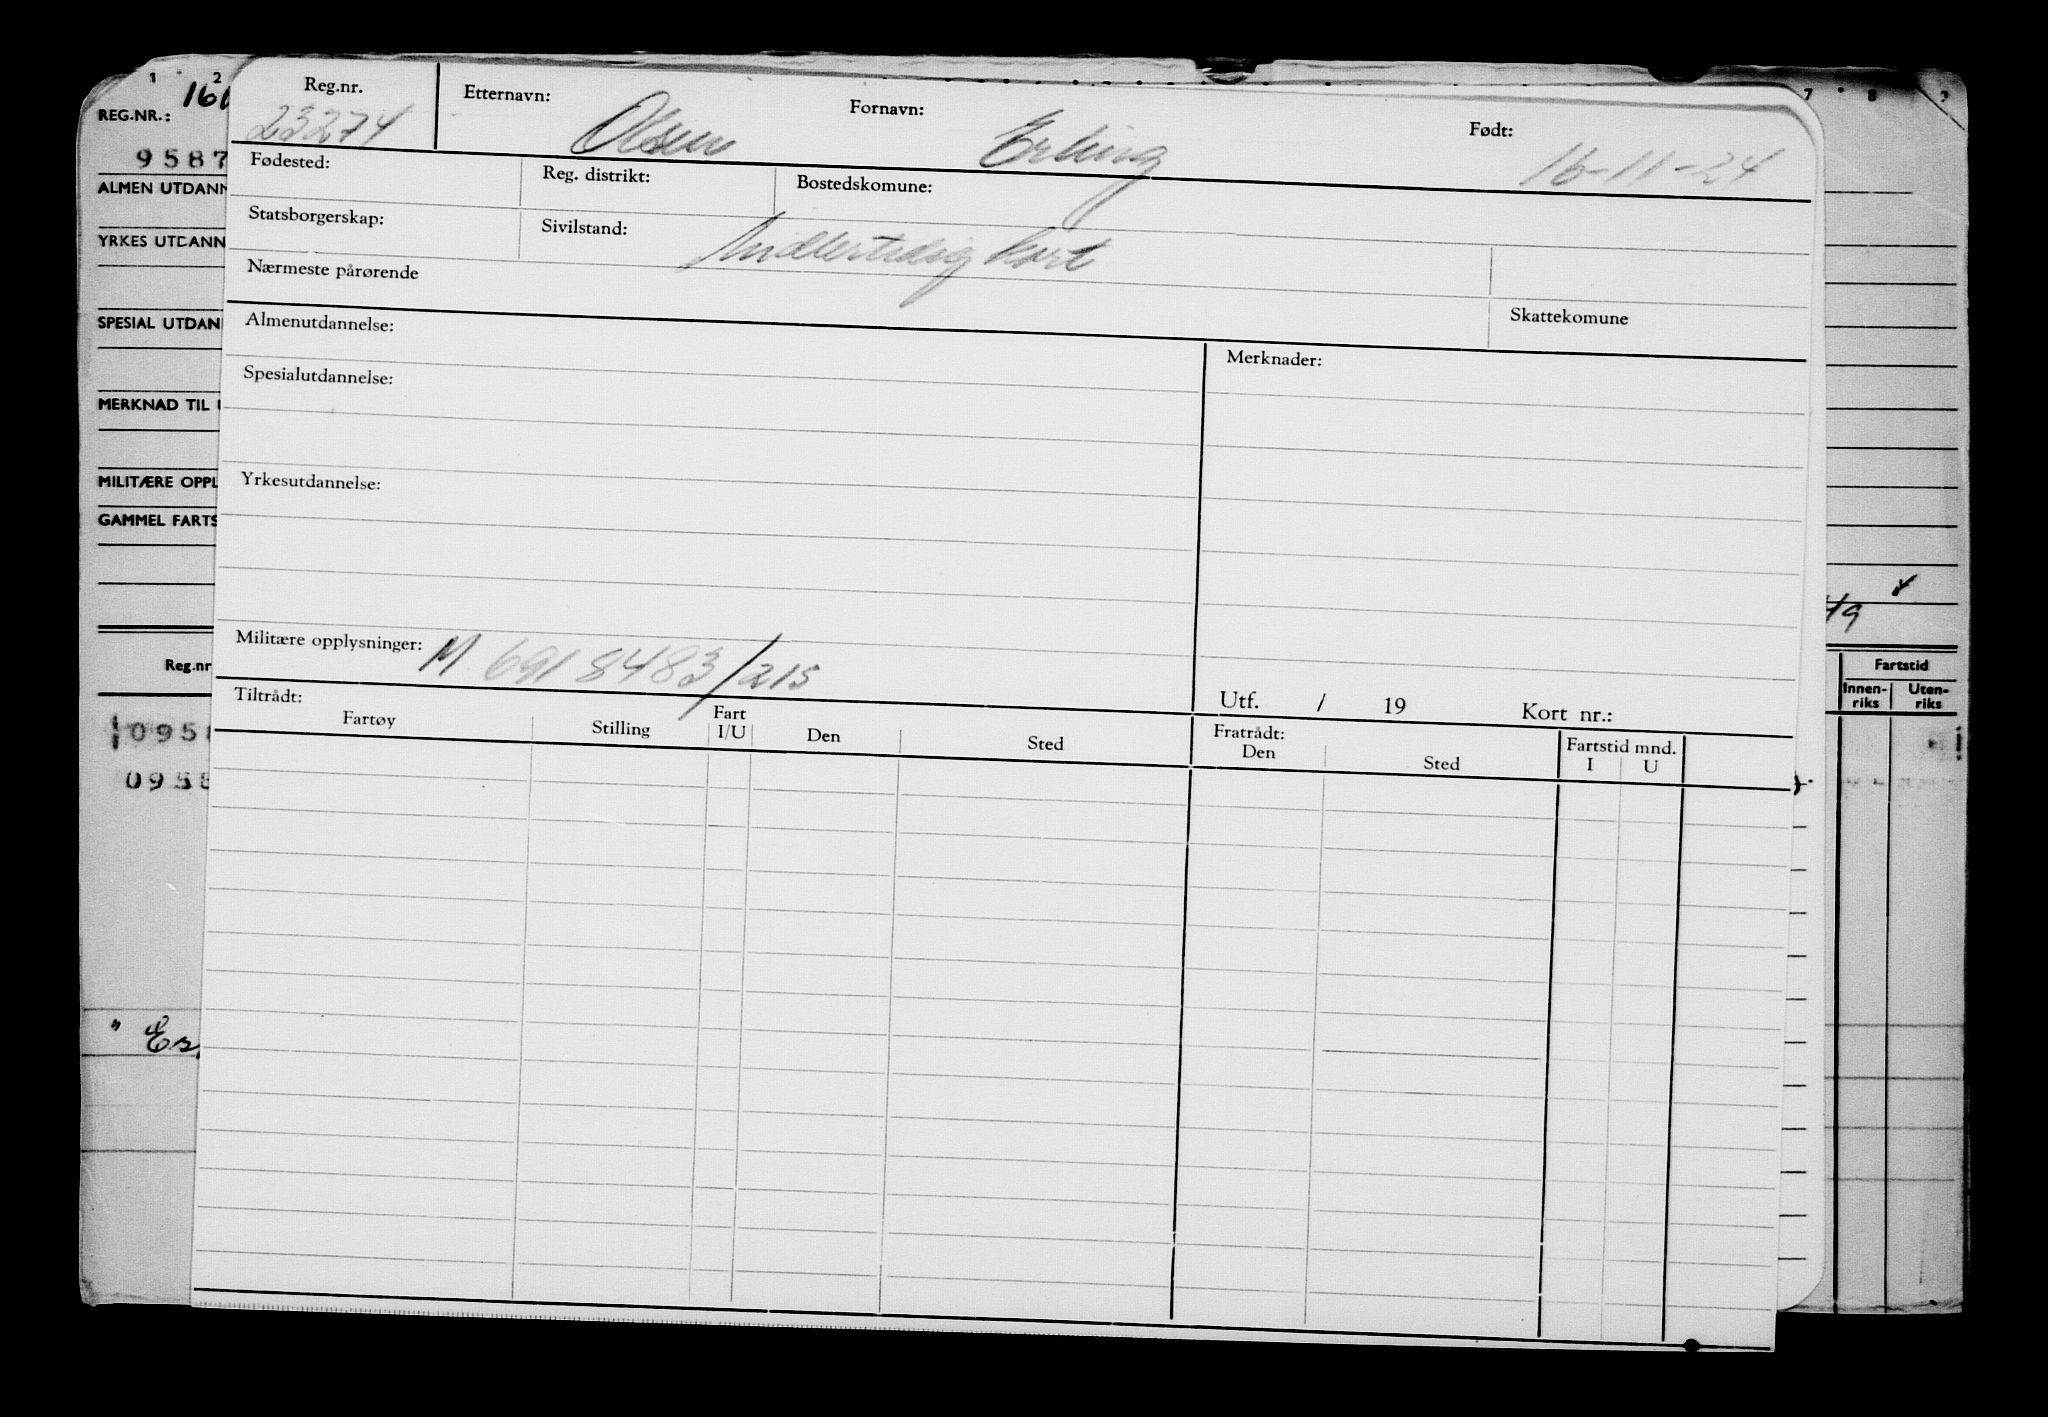 1 2 7 8
REG.NR.:
9587
ALMEN UTDANN
YRKES UTDANN
SPESIAL UTDAN
MERKNAD TIL
MILITÆRE OPPL
GAMMEL FARTS
Reg.nr
095
095
" Es
49
Fartstid
Innen-riks Uten-riks
Reg.nr. Etternavn: Fornavn: Født:
23274 Olsen Erling 16-11-24
Fødested: Reg. distrikt: Bostedskomune:
Statsborgerskap: Sivilstand: Midlertidig kort
Nærmeste pårørende
Skattekomune
Almenutdannelse: Merknader:
Spesialutdannelse:
Yrkesutdannelse:
Militære opplysninger: M 6918483/215
Utf. / 19 Kort nr.:
Tiltrådt: Fratrådt:
Fartøy Stilling Fart I/U Den Sted Den Sted Fartstid mnd. I U